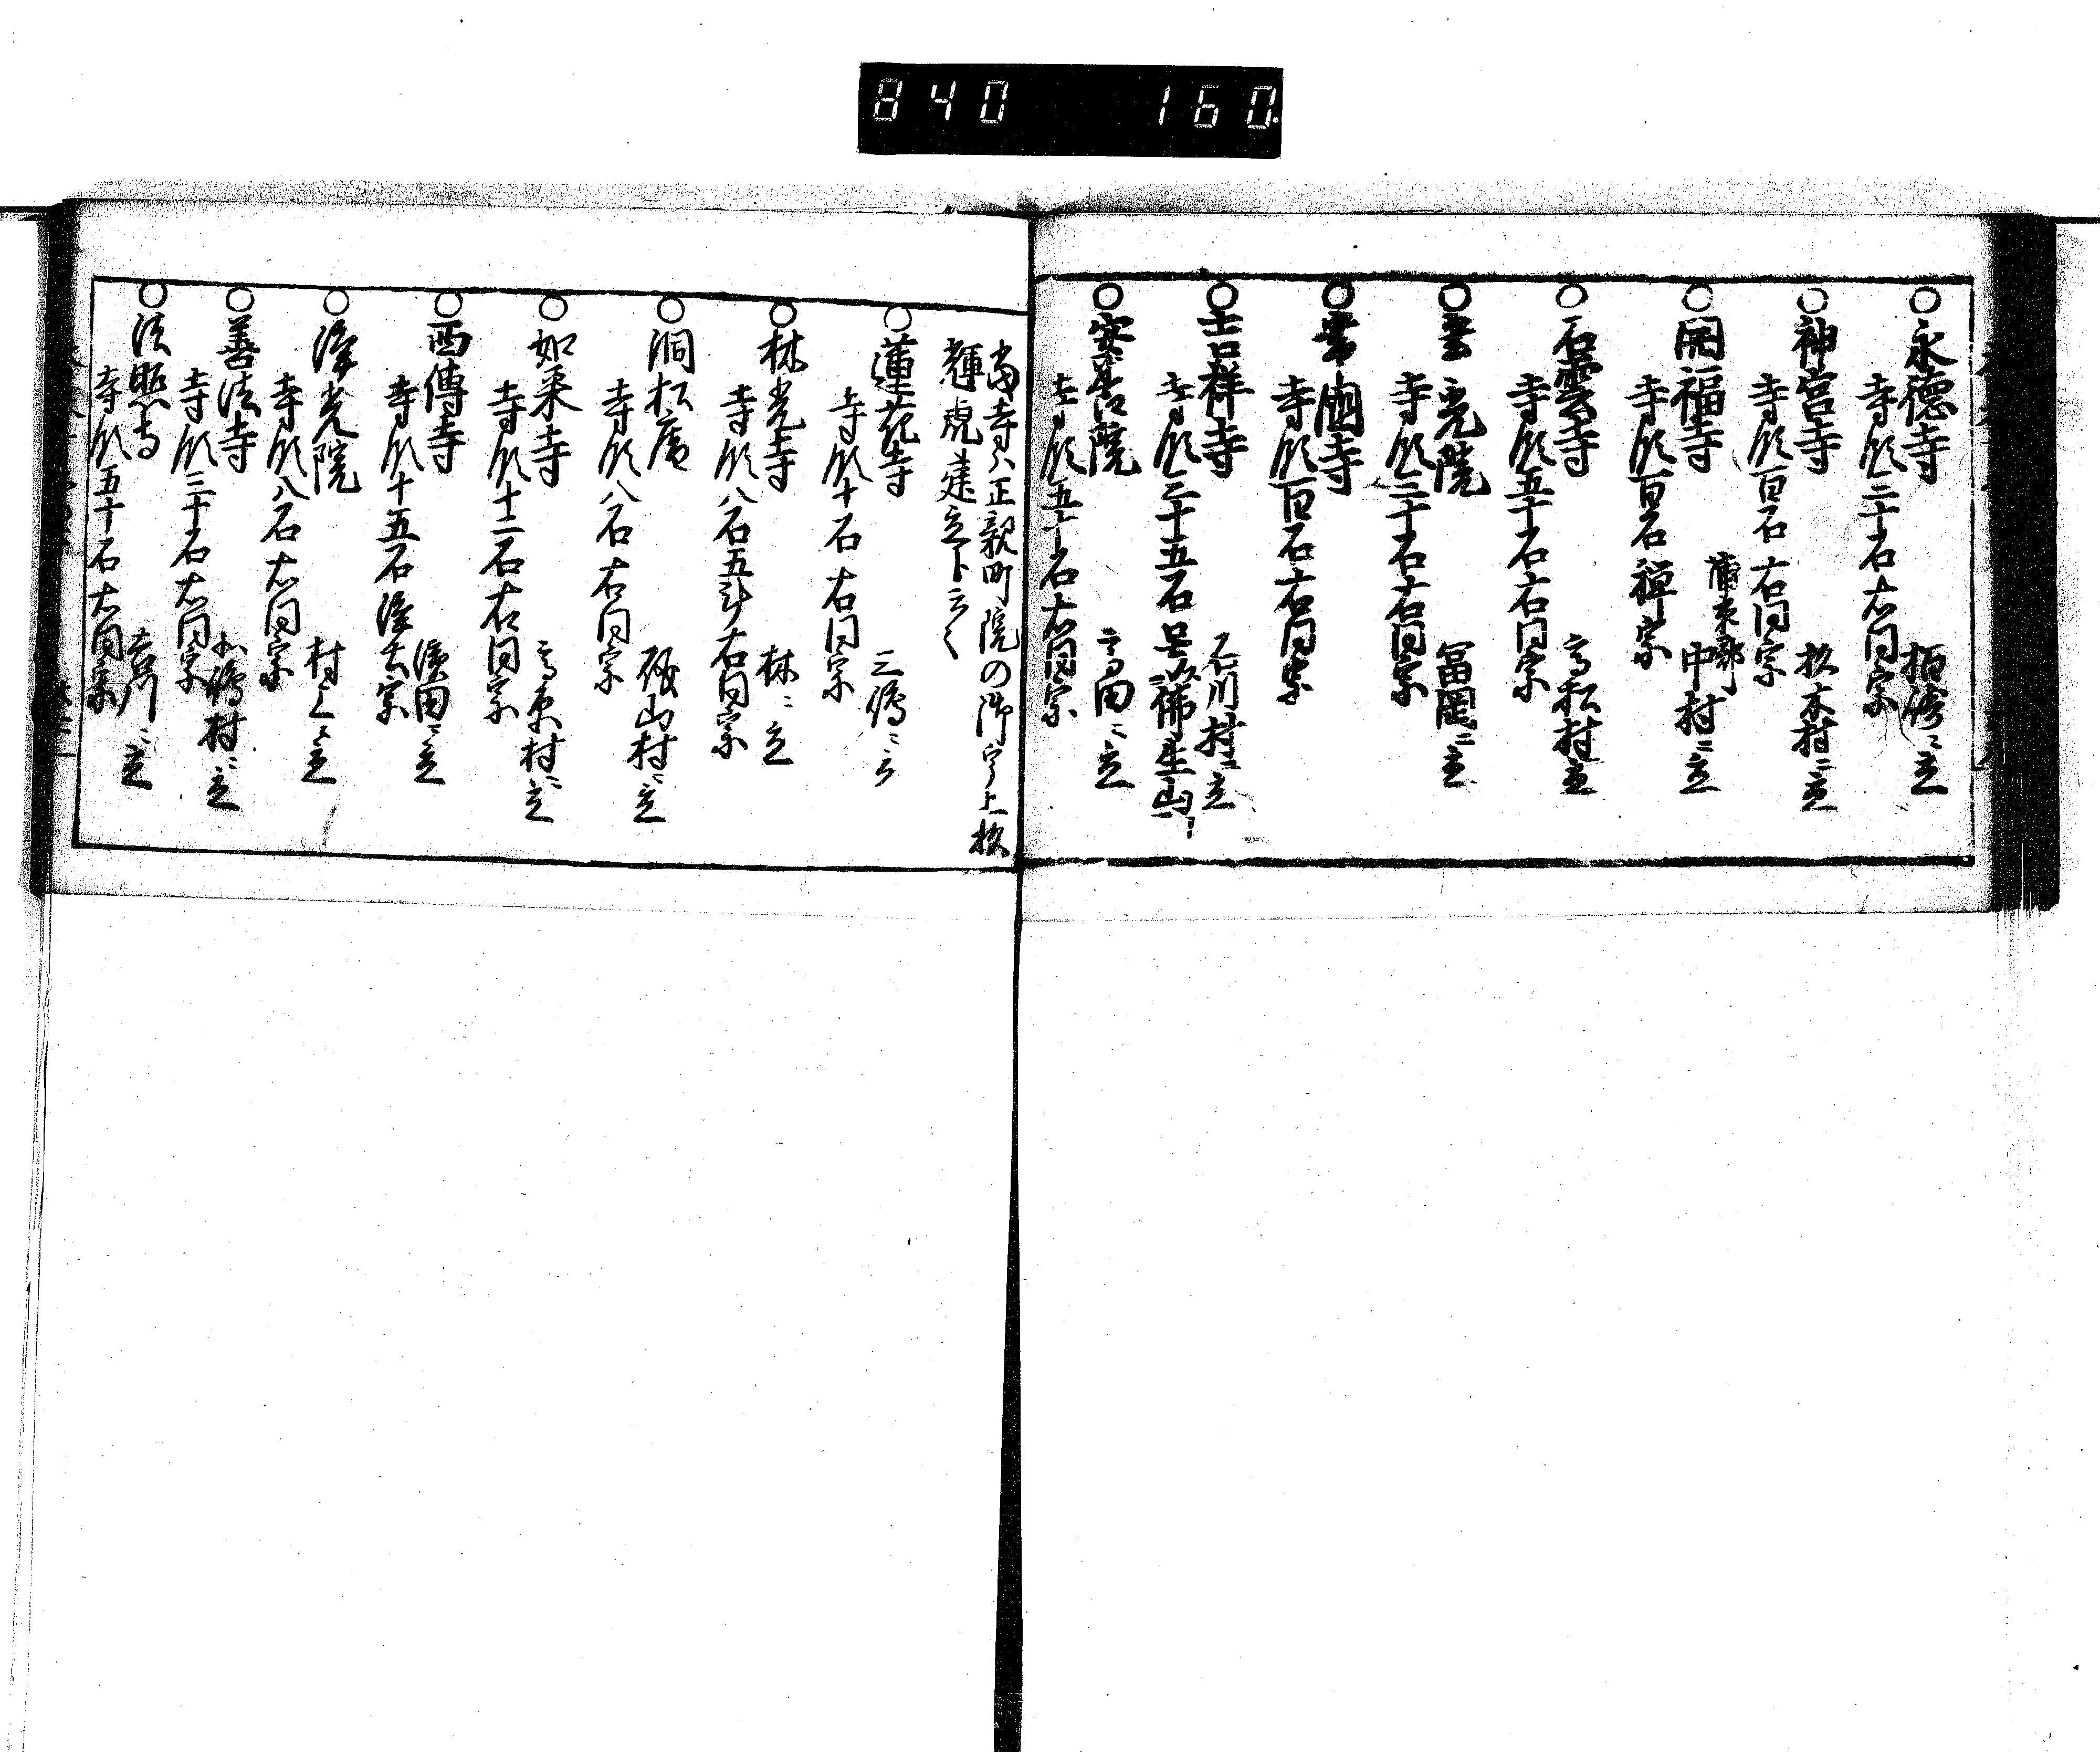 840 160.
○永徳寺
寺領二十石右同宗
○神宮寺 杉木村ニ立
寺領百石右同宗
蒲原郡
福寺 中村ニ立
寺領百石禅宗
○石雲寺 高松村立
寺領五十石右同宗
○雲光院 冨岡ニ立
寺領三十石右同宗
国寺
寺領百石右同宗
○吉祥寺 石川村ニ立
寺領三十五石号以佛生山
○安善院 高田ニ立
寺領五十石右同宗
當寺ハ正親町院の御宇上杦
輝虎建立ト云々
○蓮花寺
寺領十石右同宗
○林光寺 林ニ立
寺領八石五斗右同宗
○洞松庵 村ニ立
寺領八石右同宗
○如来寺 村ニ立
寺領十二石右同宗
○西傳寺 濱田ニ立
寺領十五石浄土宗
○浄光院 村上ニ立
寺領八石右同宗
○善法寺 小嶋村ニ立
寺領三十石右同宗
○法照寺 吉川ニ立
寺領五十石右同宗